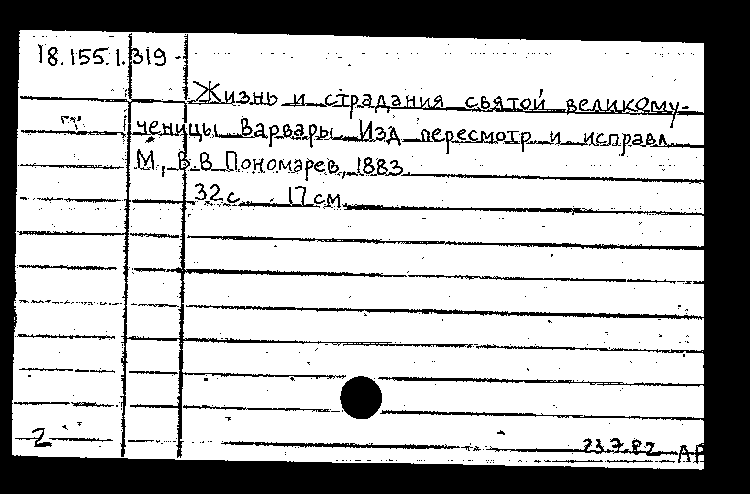 18.155.1.319
Жизнь и страдания святой великому-
ченицы Варвары. Изд. пересмотр. и исправл.
М., В.В. Пономарев, 1883.
32 с. 17 см.
2 23.7.82 АР